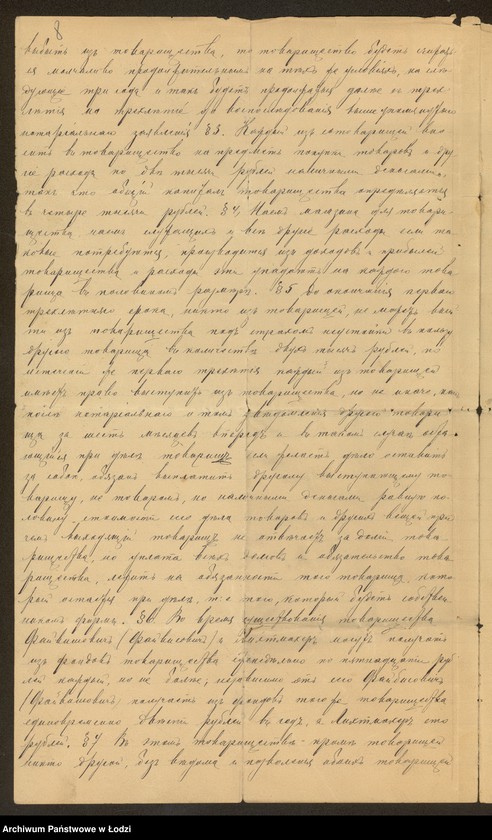 8
выбыть изъ товарищества, то товарищество будетъ считать
ся молчаливо продолжительнымъ на тѣхъ же условіяхъ, на слѣ
дующіе три года и такъ будетъ продолжаться далѣе съ трех
лѣтія на трехлѣтіе до воспослѣдованія вышеуказаннаго
нотаріальнаго заявленія. §3. Каждый изъ товарищей вно
ситъ въ товарищество на предметъ покупки товаровъ и дру
гіе расходы по двѣ тысячи рублей наличными деньгами,
такъ что общій капиталъ товарищества опредѣляется
въ четыре тысячи рублей. §4. Наемъ магазина для товари
щества, наемъ служащихъ и всѣ другіе расходы если та
ковые потребуются, производится изъ доходовъ и прибылей
товарищества и расходы эти упадаютъ на каждого това
рища въ половинномъ размѣрѣ. §5. До окончанія первого
трехлѣтняго срока, никто изъ товарищей, не можетъ вый
ти изъ товарищества подъ страхомъ неустойки въ пользу
другого товарища въ количествѣ двухъ тысячъ рублей, по
истеченіи же первого трехлѣтія каждый изъ товарищей
имѣетъ право выступить изъ товарищества, но не иначе, ка
послѣ нотаріального и томъ увѣдомленія другого товари
ща за шесть мѣсяцевъ впередъ и въ такомъ случаѣ оста
ющійся при дѣлѣ товарищъ если желаетъ дѣло оставить
за собой, обязанъ выплатить другому выступающему то
варищу, но товаромъ, но наличными деньгами равную по
ловину стоимости всего дѣла товаровъ и другихъ вещей при
чемъ выходящій товарищъ не отвѣчаетъ за долги това
рищества, но уплата всѣхъ долговъ и обязательствъ това
рищества, лежитъ на обязанности того товарища, кото
рый остается при дѣлѣ, т. е. того, который будетъ собствен
никомъ фирмы. §6. Во время существованія товарищества
Файвишевичъ (Файвисовичъ) и Лихтмахеръ могутъ получать
изъ фондовъ товарищества еженедѣльно по пятнадцати руб
лей каждый, но не болѣе; независимо отъ сего Файвисовичъ
(Файвишевичъ) получаетъ изъ фондовъ того же, товарищества
единовременно двѣсти рублей въ годъ, а Лихтмахеръ сто
рублей. §7 Въ этомъ товариществѣ кромѣ товарищей
никто другой, безъ вѣдома и позволенія обоихъ товарищей
Archiwum Państwowe w Łodzi